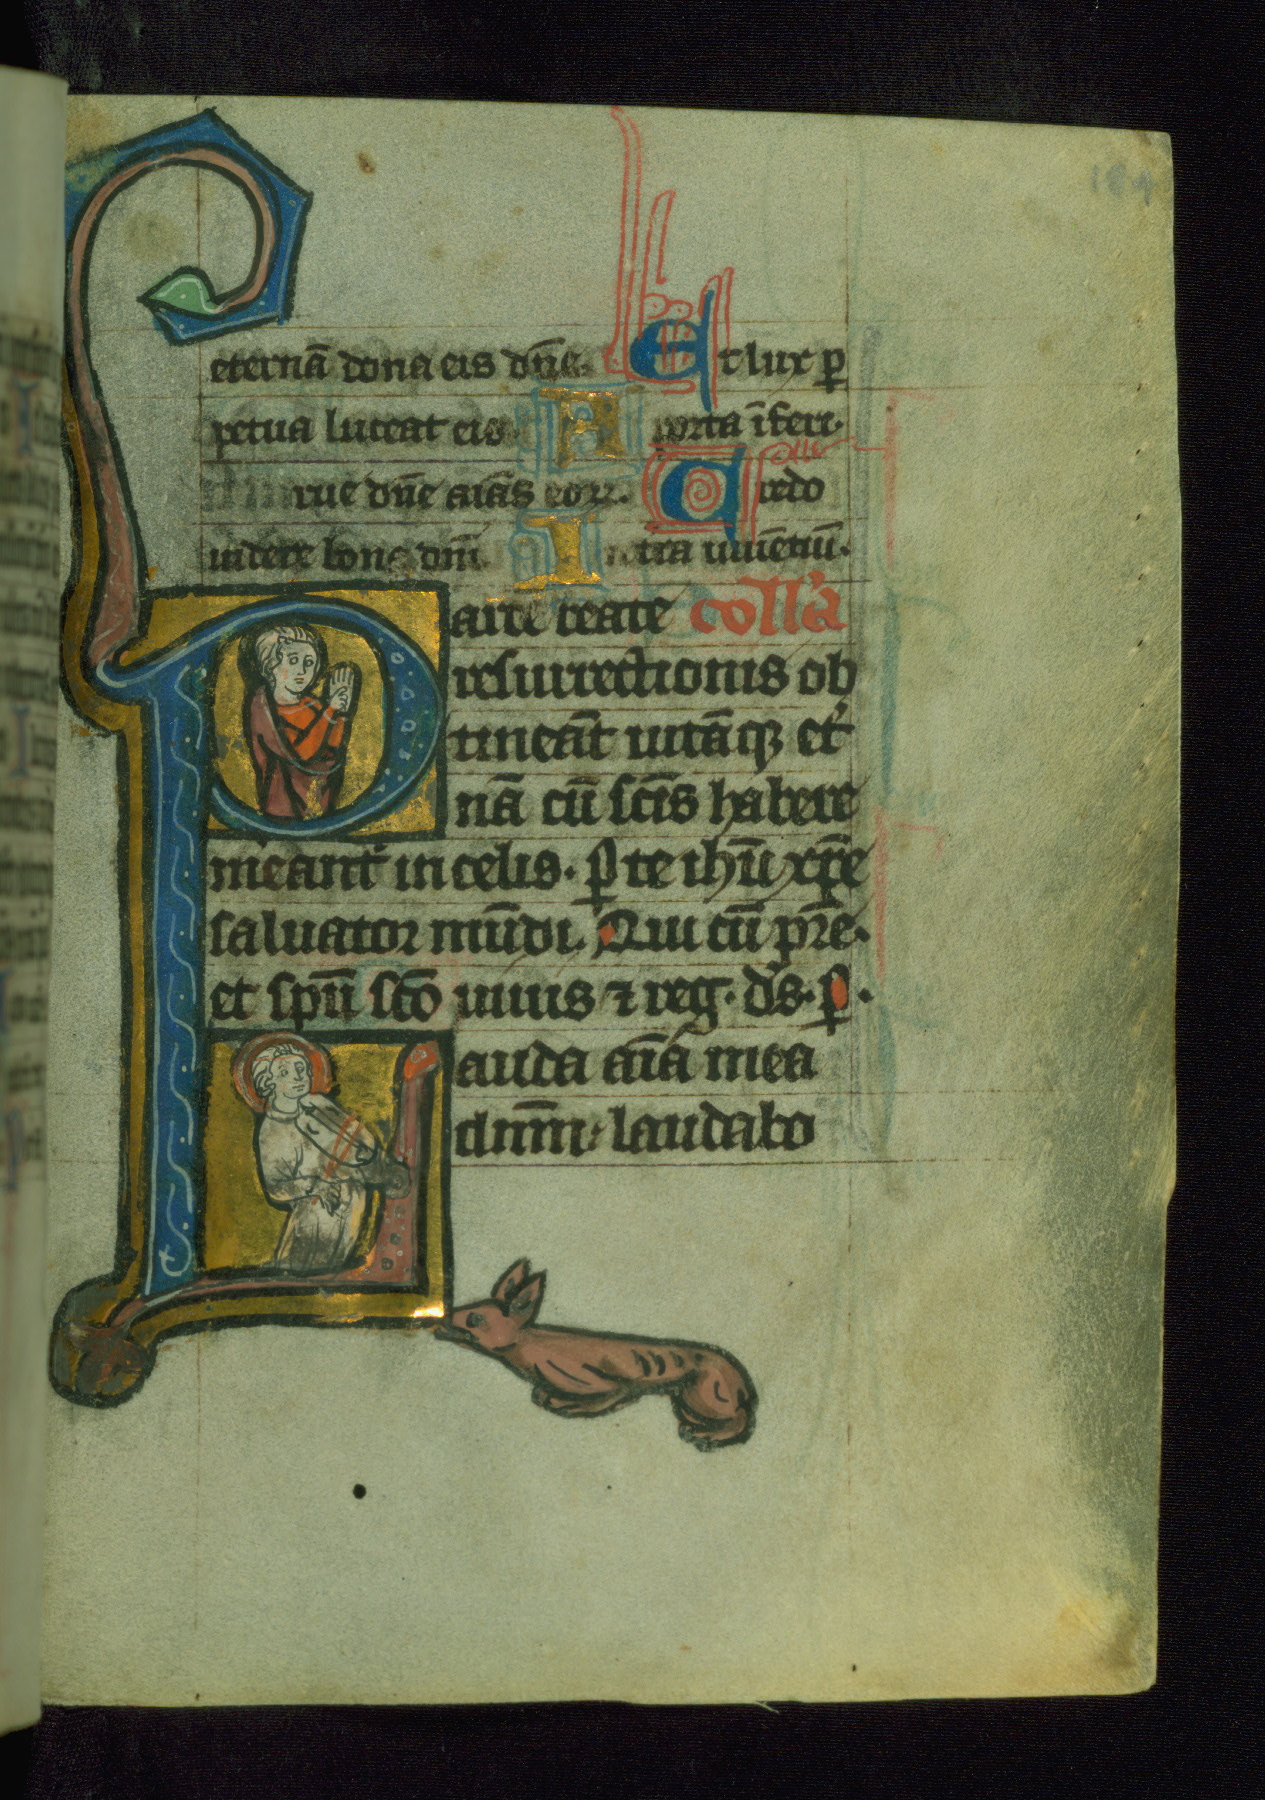 184
eternā dona eis dn̄e. Et lux ꝑ
petua luceat eis. A porta īferi.
rue dn̄e aīas eoꝝ. Credo
uidere bona dn̄i. In terra uiuētiū.
coll'a
resurrectionis ob
tineāt uitāqꝫ et'
nā cū scīs habere
meant' in celis. ꝑ te ihū xp̄e
saluator mūdi. Qui cū pr̄e.
et spū scō uiuis ⁊ reg. ds. ꝑ.
Lauda aīa mea
dn̄m. laudabo